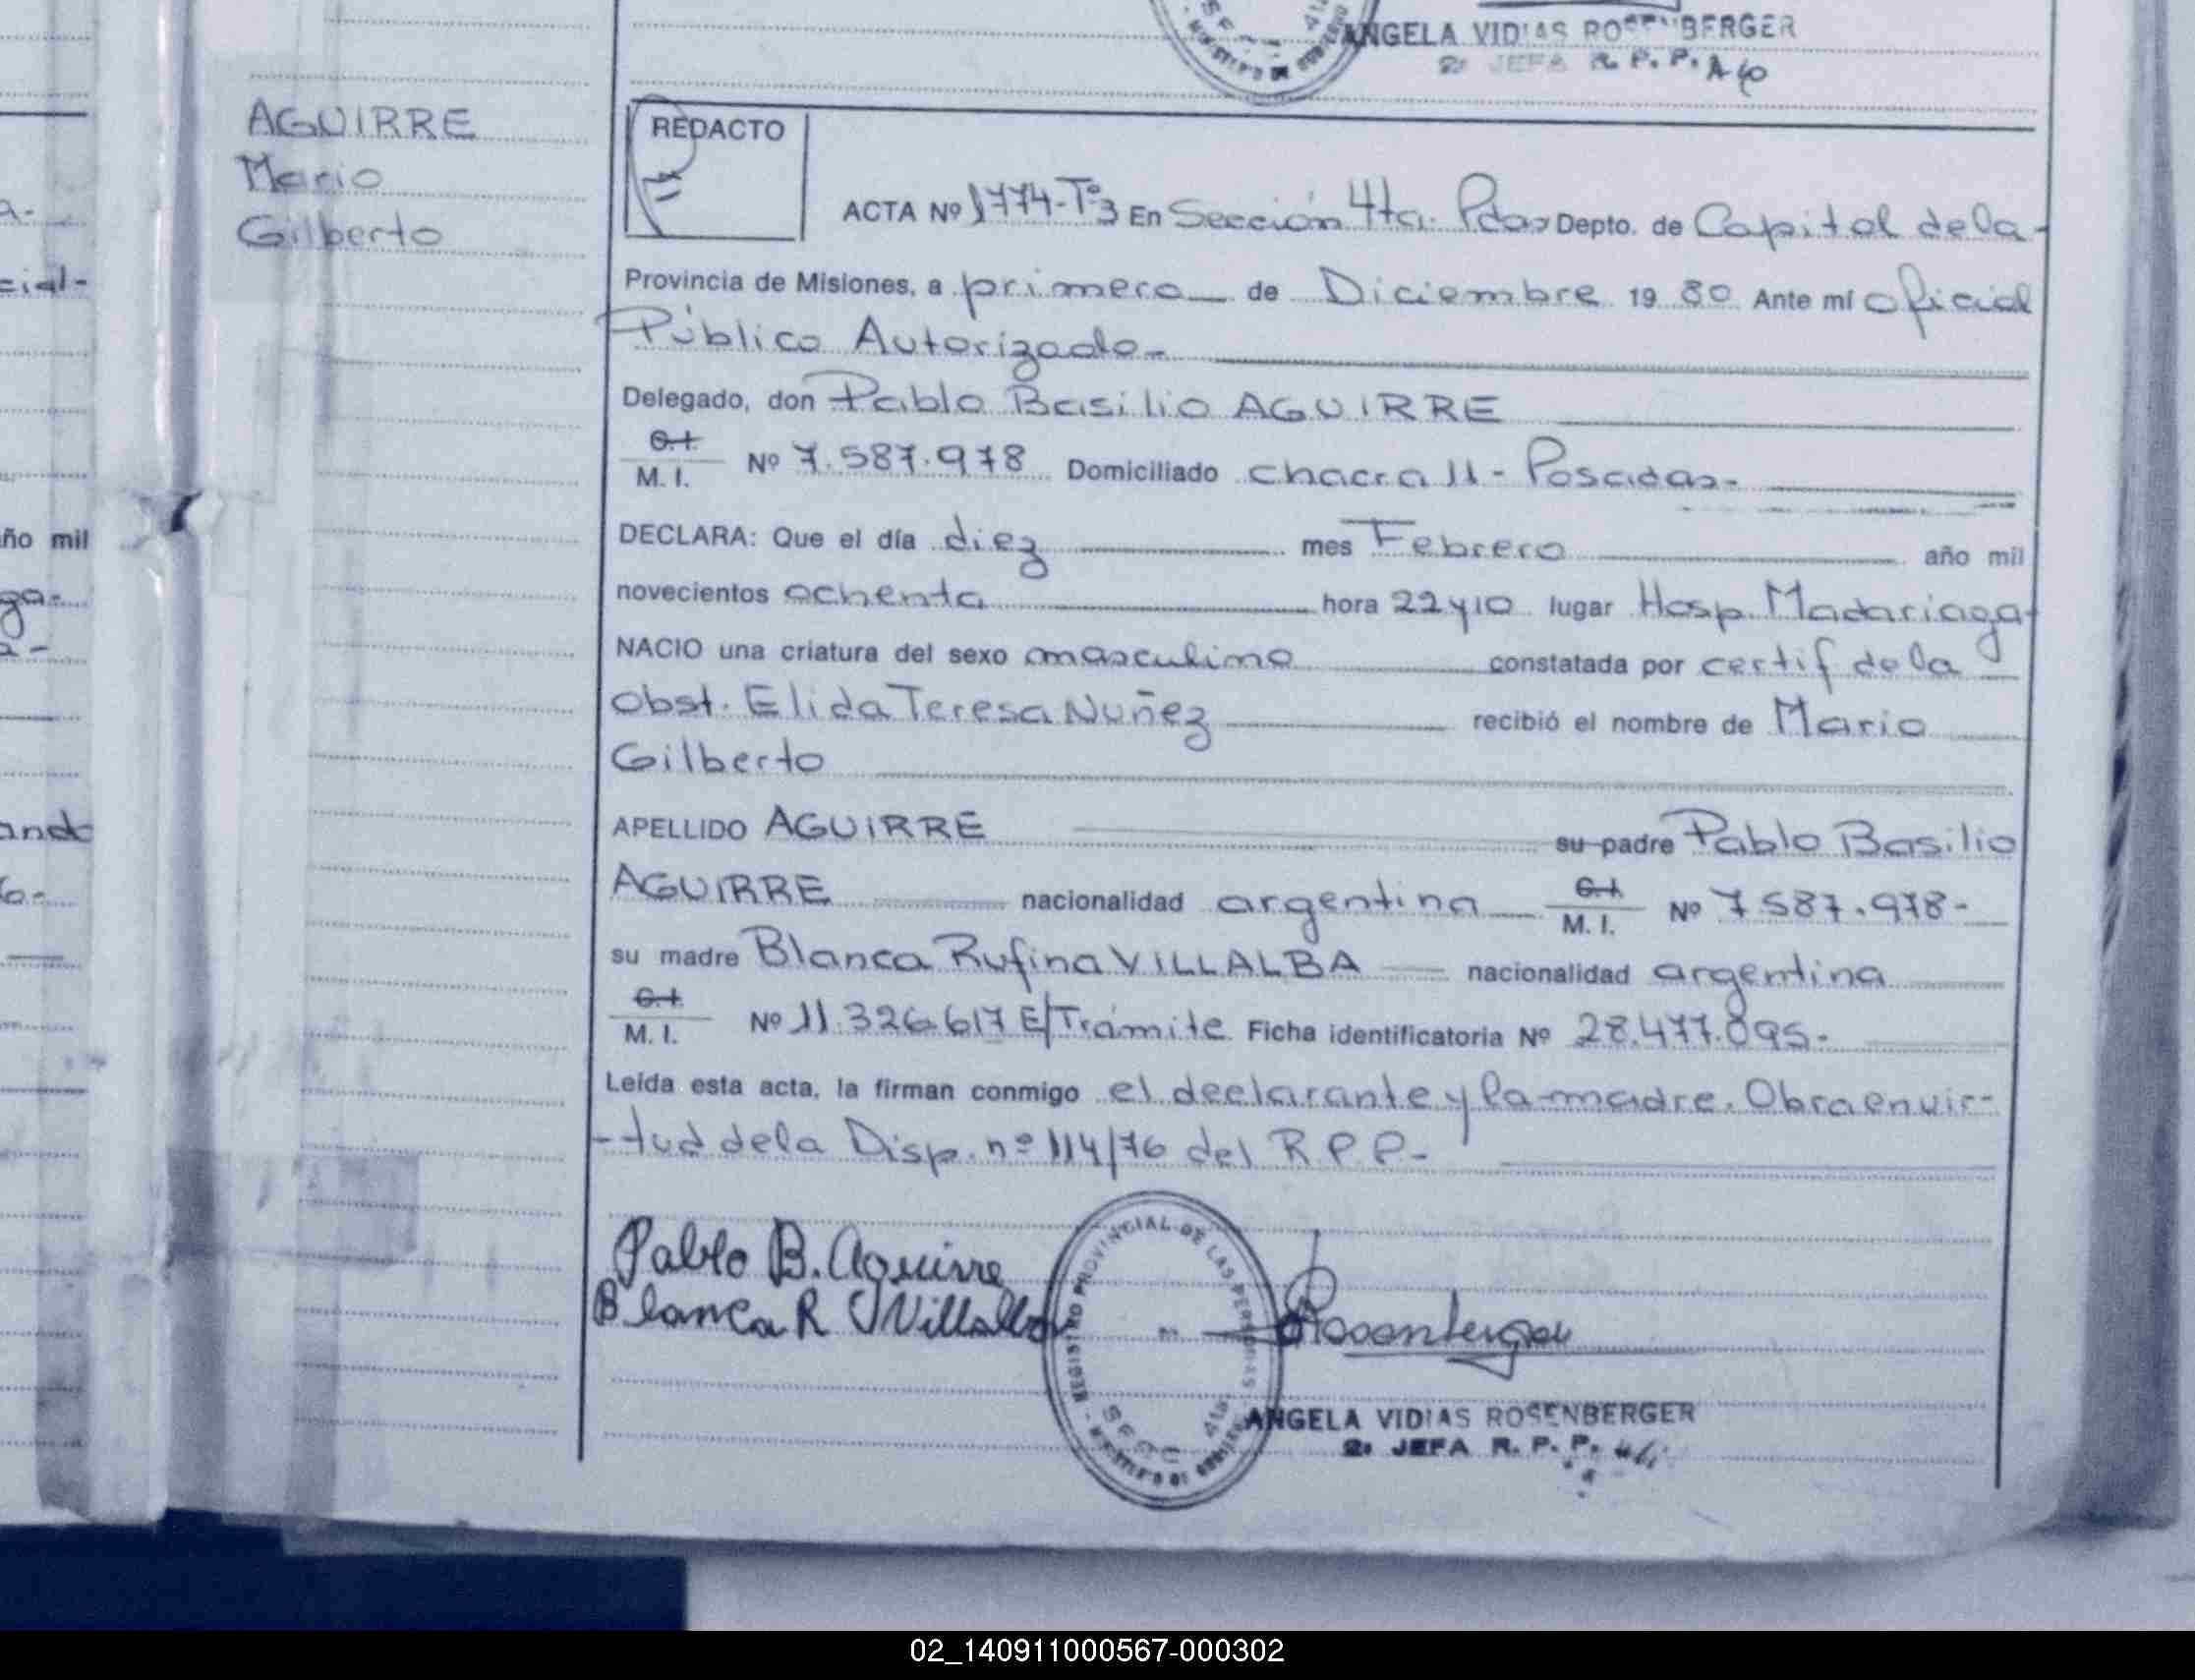 ANGELA VIDIAS ROSENBERGER
2ª JEFA R. P. P.
AGUIRRE
Mario
Gilberto
a-
cial-
ño mil
ga-
a-
ando
o-
REDACTO
ACTA Nº 1774-Tº3 En Sección 4ta. Pdas Depto. de Capital de la-
Provincia de Misiones, a primero de Diciembre 19 80 Ante mí oficial
Público Autorizado-
Delegado, don Pablo Basilio AGUIRRE
C.I. M. I. Nº 7.587.978 Domiciliado chacra 11 - Posadas-
DECLARA: Que el día diez mes Febrero año mil
novecientos ochenta hora 22 y 10 lugar Hosp. Madariaga-
NACIO una criatura del sexo masculino constatada por certif de la
Obst. Elida Teresa Nuñez recibió el nombre de Mario
Gilberto
APELLIDO AGUIRRE su padre Pablo Basilio
AGUIRRE nacionalidad argentina C.I. M. I. Nº 7.587.978-
su madre Blanca Rufina VILLALBA nacionalidad argentina
C.I. M. I. Nº 11.326.617 E/Trámite Ficha identificatoria Nº 28.477.095-
Leída esta acta, la firman conmigo el declarante y la madre. Obra en vir-
-tud de la Disp. nº 114/76 del R P P-
Pablo B. Aguirre
Blanca R Villalba
REGISTRO PROVINCIAL DE LAS PERSONAS
SECC 4ta
MINISTERIO DE GOBIERNO
Rosenberger
ANGELA VIDIAS ROSENBERGER
2ª JEFA R. P. P.
02_140911000567-000302